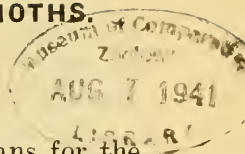 MOTHS.
Museum of Comparative
Zoology
AUG 7 1941
LIBRARY
ns for the